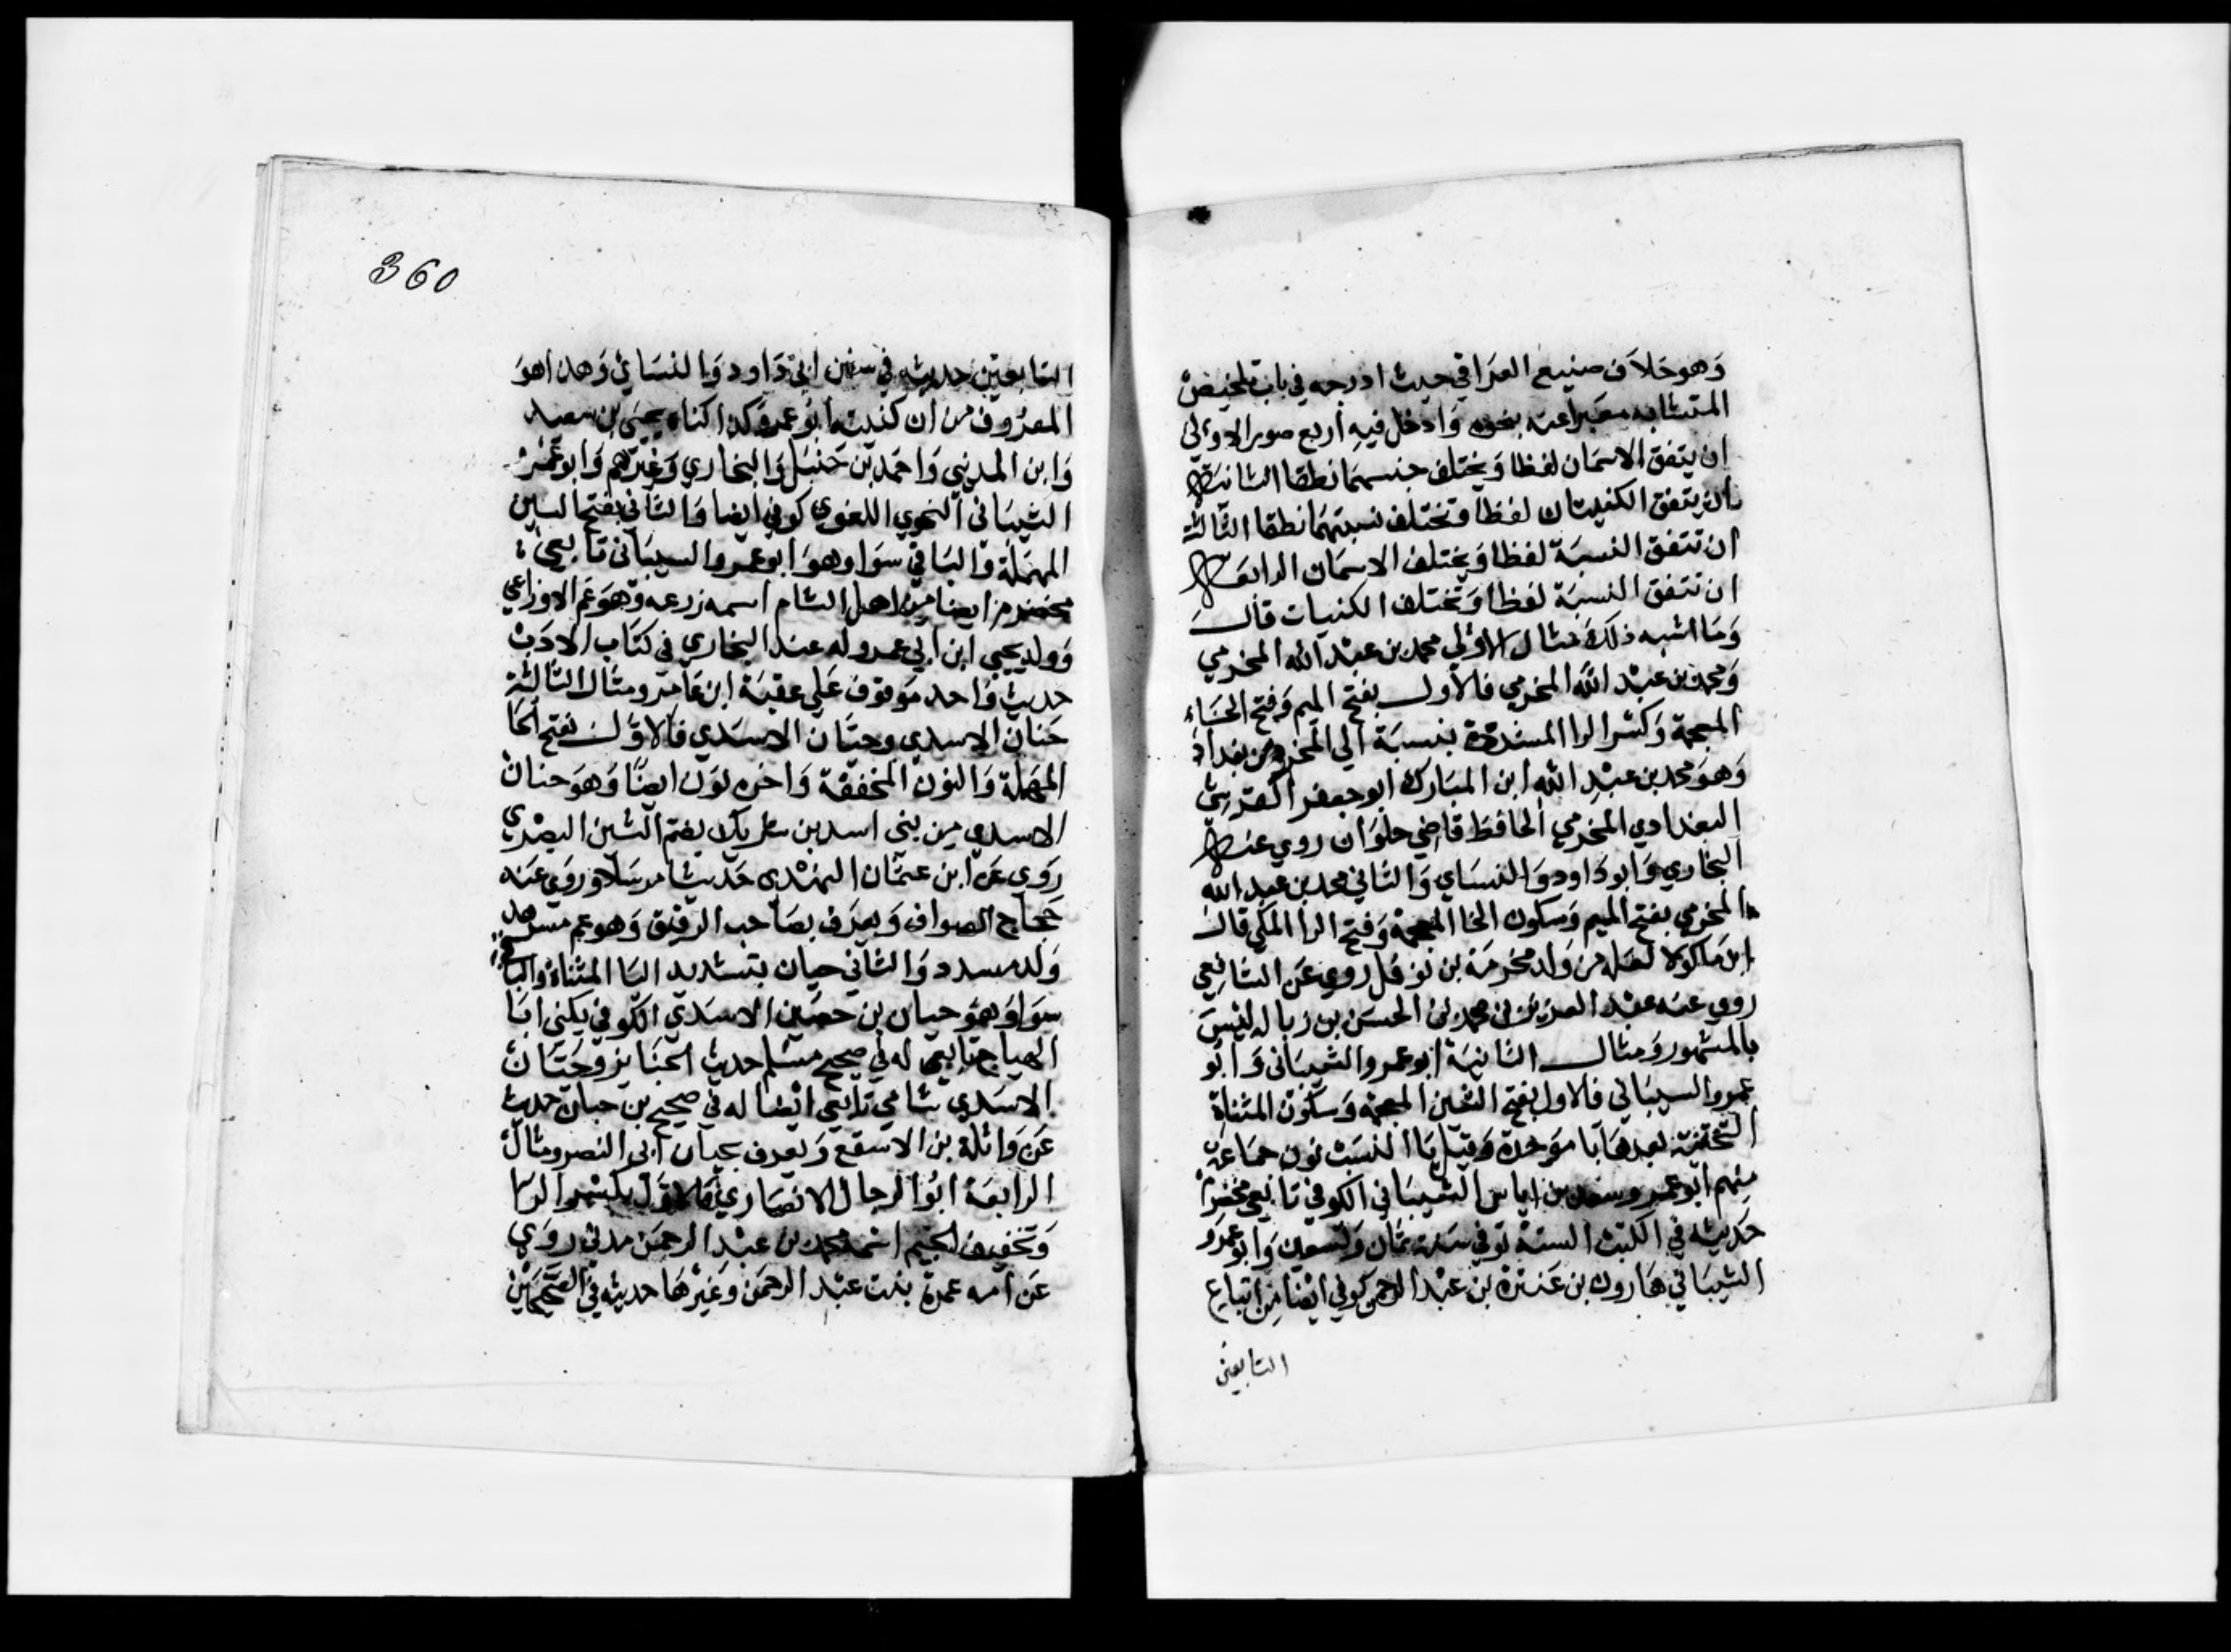 وَهو خلاَف صنيع العرَاقي حيث ادرجه في باب تلخيص
المتشابه معَبراعنه بنحوه وَادخل فيه أربع صور الاولي
ان يتفق الاسمَان لفظا وَيختلف جنسهمَا نطقا الثانية
ان يتفق الكنيتان لفظا وتختلف نسبتهمَا نطقا الثالثة
ان تتفق النسبَة لفظا وَيختلف الاسمَان الرابعَة
ان تتفق النسبَة لفظا وَتختلف الكنيات قالَ
وَمَا اشبه ذلكَ مثال الاولي محمد بن عبْد الله المخرمي
وَمحمد بن عبْد اللَّه المخرمي فالأول بفتح الميم وَفتح الخَاء
المعجمة وَكسْر الرا المشددة بنسبَة الي المخرم من بغداد
وَهوَ محمد بن عبْد الله ابن المبَارك ابو جعفر القرشي
البغدادي المخرمي الحافظ قاضي حلوَان روي عنه
البخاري وَابو دَاود وَالنسَاي وَالثاني محمد بن عبد الله
المخرمي بفتح الميم وَسكون الخا المعجمة وَفتح الرا المكي قال
ابن مَاكولا لعَله من وَلد مخرمَة بن نوفل روي عَن الشافِعي
روي عنه عبْد العزيز بن محمد بن الحسَن بن زبالة ليسَ
بالمشهور وَمثال الثانيَة ابو عمرو الشيبَاني وَابُو
عمرو السيبَاني فالاول بفتح الشين المعجمة وَسكون المثناة
التحتية بعدهَا بَا موَحدة وَقيل يَا النسَب نون جمَاعة
منهم ابو عمرو سعد بن اياس الشيبَاني الكوفي تابعي مخضرم
حَديثه في الكتب الستة توفي سَنة ثمَان وَتسعين وَابو عمرو
الشيبَاني هَارون بن عَنترة بن عبْد الرحمن كوفي ايْضا من اتباع
التابعين
360
التابعين حديثه في سنن ابي دَاود وَالنسَاي وَهذا هوَ
المعرُوف من ان كنيته ابُو عمرو وَكذا كناه يحيى بن سعيد
وَابن المديني وَاحمَد بن حَنبَل وَالبخاري وَغيرهم وَابو عمرو
الشيبَاني النحوي اللغوي كوفي ايضا وَالثاني بفتح السين
المهمَلة وَالبَاقي سَوا وهوَ ابو عمرو السيبَاني تابعي
مخضرم ايضا من اهل الشام اسمه زرعه وَهوَ عَم الاوزاعي
وَوالد يحيي ابن ابي عمرو له عند البخاري في كتَاب الادَب
حديث وَاحد موَقوف عَلي عقبَة ابن عَامر ومثال الثالثة
حَنان الاسدي وحيَّان الاسَدي فالاوَّل بفتح الحَا
المهمَلة وَالنون المخففة وَاخره نوَن ايضًا وَهوَ حنان
الاسدي من بني اسد بن شريك بضم الشين البصْري
روَي عَن ابن عثمَان النهْدي حَديثا مرسَلا وَرَوَي عنه
حَجاج الصواف وَيعرَف بصَاحب الرقيق وَهو عم مسرهد
وَلد مسدد وَالثاني حيان بتشديد اليَا المثناة وَالباقي
سَوا وَهوَ حيان بن حصَين الاسَدي الكوفي يكني ابَا
الهياج تابعي له في صحيح مسَلم حديث الجنَايز وَحيَّان
الاسَدي شامي تابعي ايْضا له في صحيح بن حبان حديث
عَن وَاثلة بن الاسقع وَيعرف بحيان ابي النصر ومثال
الرابعَة ابُو الرجال الانصَاري فالاوَّل بكسْر الرا
وَتخفيف الجيم اسمه محمد بن عبْد الرحمَن مدني روَي
عَن امه عمرة بنت عبْد الرحمَن وَغيْرهَا حديثه في الصَّحيحَين